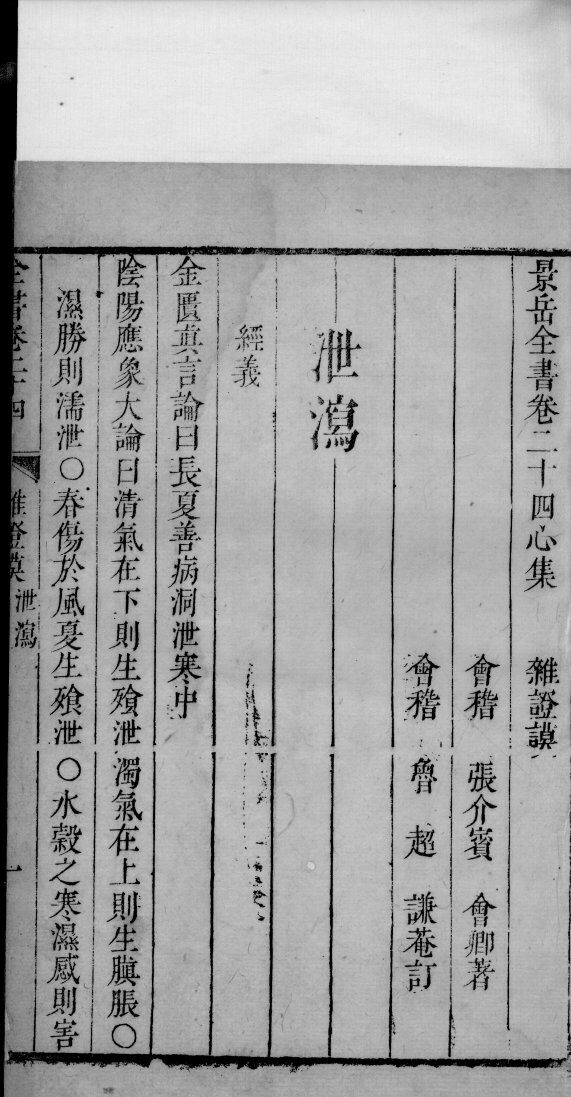 景岳全書卷二十四心集　雜證謨
會稽　張介賓　會卿著
會稽　魯　超　謙菴訂
泄瀉
經義
金匱真言論曰長夏善病洞泄寒中
陰陽應象大論曰清氣在下則生飱泄濁氣在上則生䐜脹〇
濕勝則濡泄〇春傷於風夏生飱泄〇水穀之寒濕感則害
全書卷二十四　雜證謨　泄瀉　一